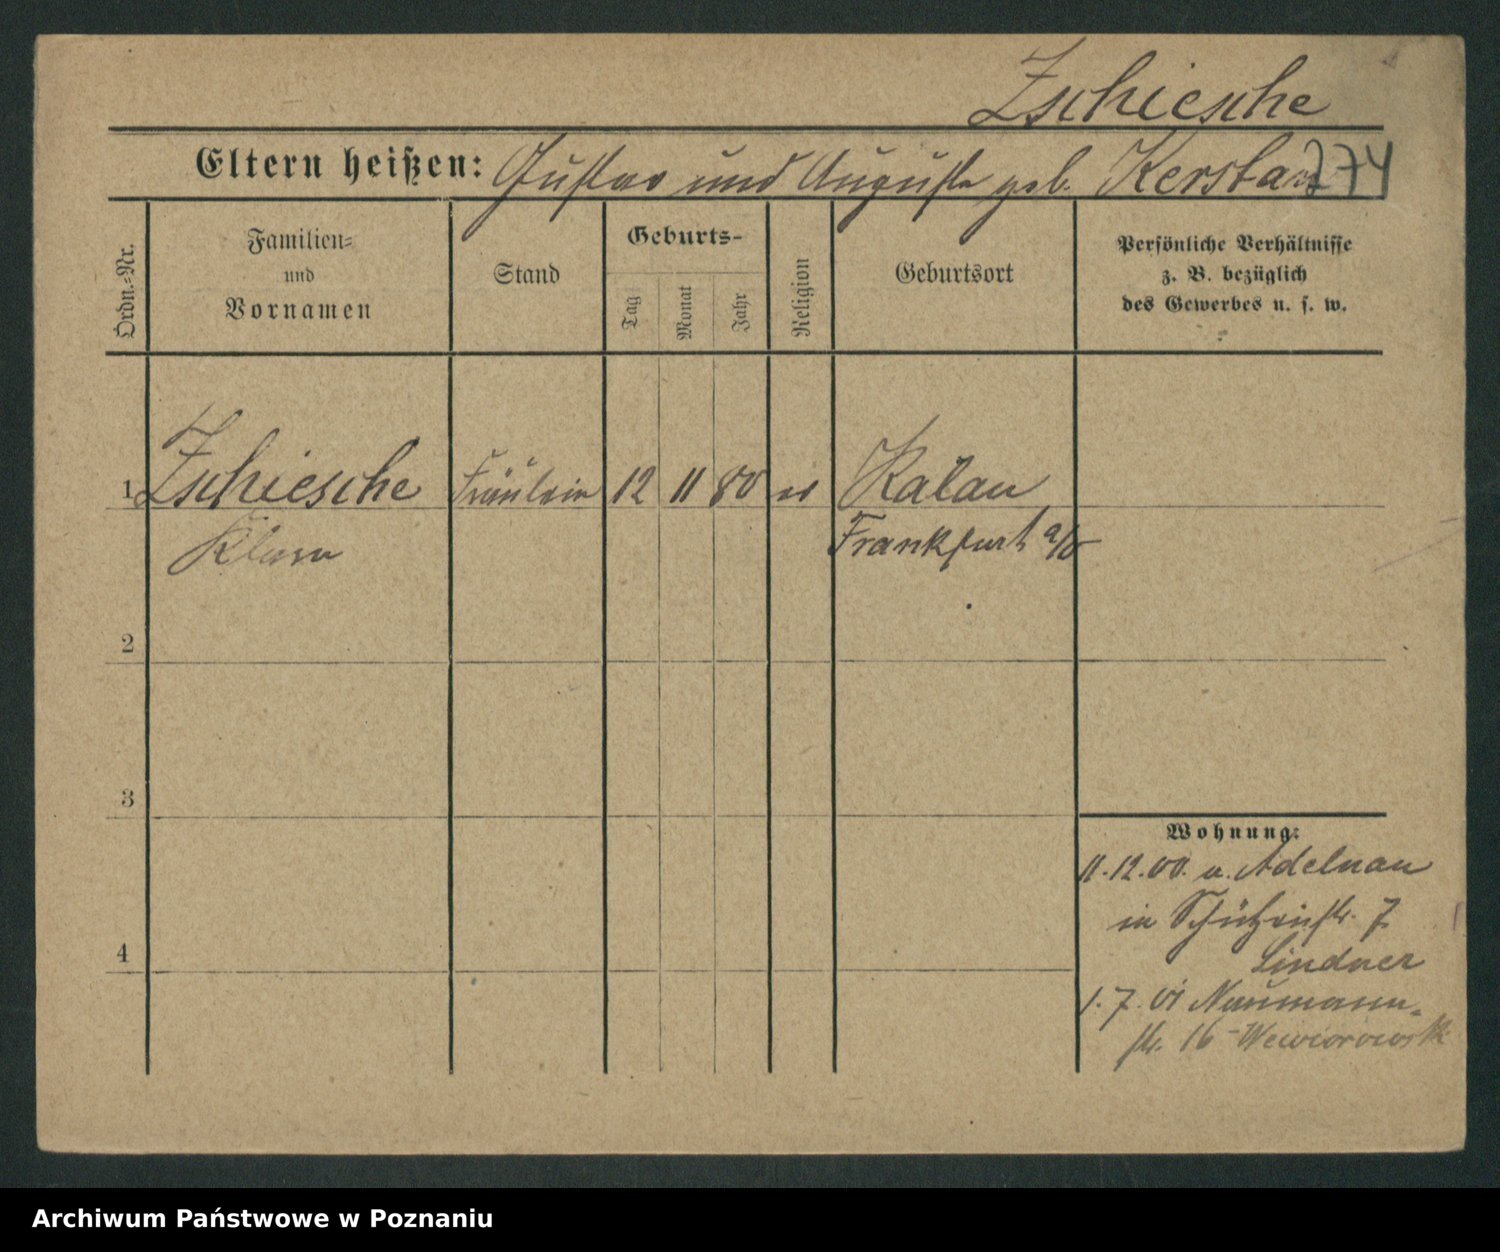 Zschiesche
Eltern heißen: Gustav und Auguste geb. Kerstan 774
Ordn.-Nr.
Familien-
und
Vornamen
Stand
Geburts-
Tag
Monat
Jahr
Religion
Geburtsort
Persönliche Verhältnisse
z. B. bezüglich
des Gewerbes u. s. w.
1 Zschiesche Fräulein 12 11 80 ev Kalau
Klara Frankfurt a/O
2
3
4
Wohnung:
11.12.00. v. Adelnau
in Schützenstr. 7
Lindner
1.7.01 Naumann-
str. 16 - Wewiorowsk